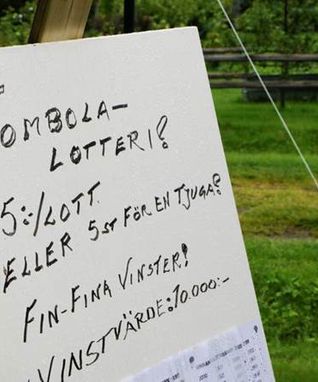 OMBOLA-
LOTTERI?
5:-/LOTT.
ELLER 5ST FÖR EN TJUGA?
FIN-FINA VINSTER!
VINSTVÄRDE: 10.000:-